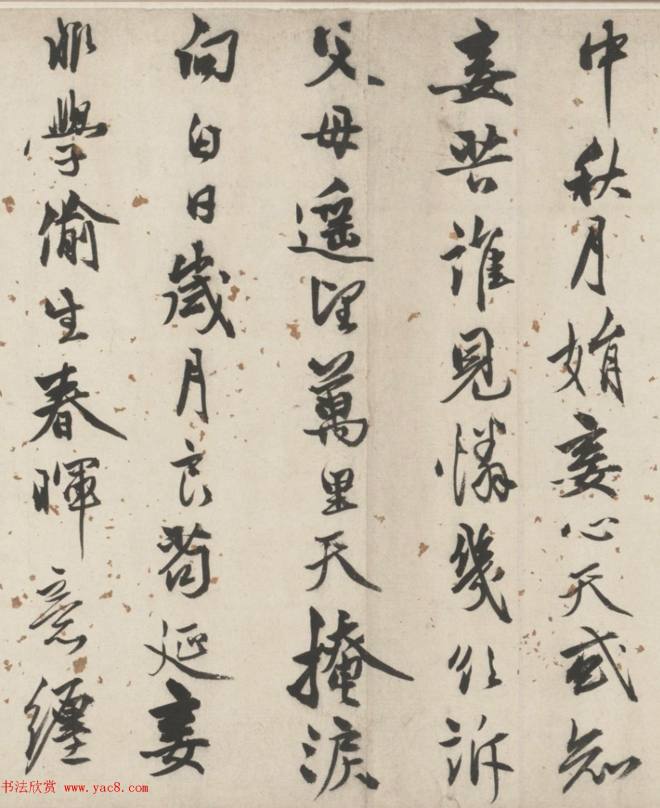 中秋月娟妾心天或知
妾苦誰見憐幾欲訴
父母遥望萬里天掩淚
向白日歲月良苟延妾
非學偷生春暉意纏
书法欣赏 www.yac8.com